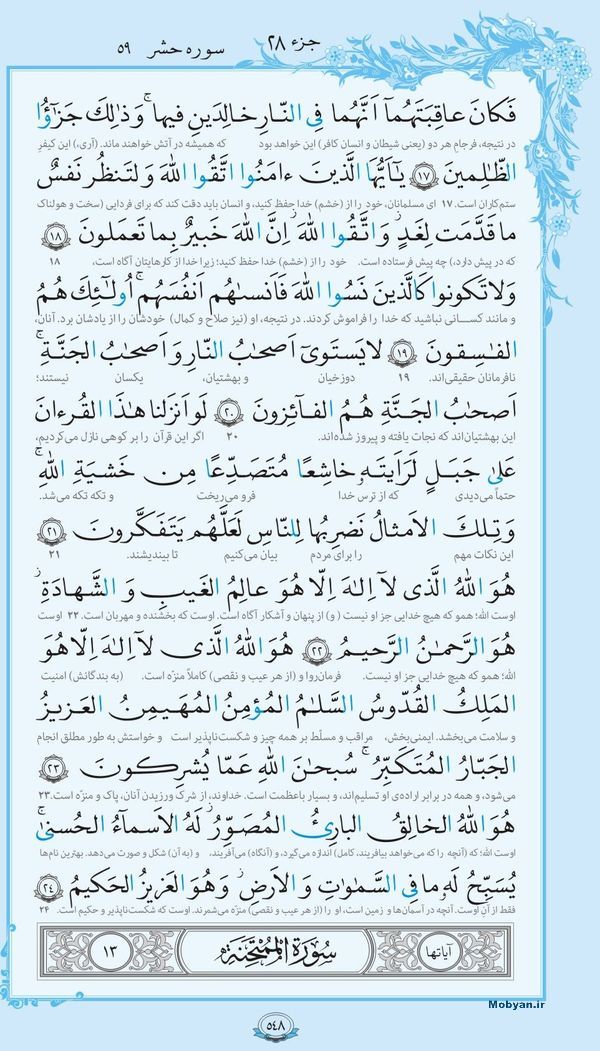 جزء ۲۸
سوره حشر ۵۹
فَكَانَ عَاقِبَتَهُمَآ اَنَّهُما فِى النّارِ خالِدَينِ فيها ۚ وَ ذٰلِكَ جَزٰٓؤُا
در نتیجه، فرجام هر دو (یعنی شیطان و انسان کافر) این خواهد بود که همیشه در آتش خواهند ماند. (آری،) این کیفرِ
الظّٰلِمينَ ۱۷ يٰٓاَيُّهَا الَّذينَ ءامَنُوا اتَّقُوا اللهَ وَلتَنظُر نَفسٌ
ستم‌کاران است. ۱۷ ای مسلمانان، خود را از (خشم) خدا حفظ کنید، و انسان باید دقت کند که برای فردایی (سخت و هولناک
ما قَدَّمَت لِغَدٍ ۖ وَ اتَّقُوا اللهَ ۚ اِنَّ اللهَ خَبيرٌ بِما تَعمَلونَ ۱۸
که در پیش دارد،) چه پیش فرستاده است. خود را از (خشم) خدا حفظ کنید؛ زیرا خدا از کارهایتان آگاه است، ۱۸
وَلا تَكونوا كَالَّذينَ نَسُوا اللهَ فَاَنسىٰهُم اَنفُسَهُم ۚ اُولٰٓئِكَ هُمُ
و مانند کسـانی نباشید که خدا را فراموش کردند. در نتیجه، او (نیز صلاح و کمال) خودشان را از یادشان برد. آنان،
الفٰسِقونَ ۱۹ لا يَستَوىٓ اَصحٰبُ النّارِ وَ اَصحٰبُ الجَنَّةِ ۚ
نافرمانان حقیقی‌اند. ۱۹ دوزخیان و بهشتیان، یکسان نیستند؛
اَصحٰبُ الجَنَّةِ هُمُ الفآئِزونَ ۲۰ لَو اَنزَلنا هٰذَا القُرءانَ
این بهشتیان‌اند که نجات یافته و پیروز شده‌اند. ۲۰ اگر این قرآن را بر کوهی نازل می‌کردیم،
عَلىٰ جَبَلٍ لَرَاَيتَهٗ خاشِعًا مُتَصَدِّعًا مِن خَشيَةِ اللهِ ۚ
حتماً می‌دیدی که از ترس خدا فرو می‌ریخت و تکه تکه می‌شد.
وَ تِلكَ الاَمثالُ نَضرِبُها لِلنّاسِ لَعَلَّهُم يَتَفَكَّرونَ ۲۱
این نکات مهم را برای مردم بیان می‌کنیم تا بیندیشند. ۲۱
هُوَ اللهُ الَّذى لآ اِلٰهَ اِلّا هُوَ ۖ عالِمُ الغَيبِ وَ الشَّهادَةِ ۖ
اوست الله؛ همو که هیچ خدایی جز او نیست (و) از پنهان و آشکار آگاه است. اوست که بخشنده و مهربان است. ۲۲ اوست
هُوَ الرَّحمٰنُ الرَّحيمُ ۲۲ هُوَ اللهُ الَّذى لآ اِلٰهَ اِلّا هُوَ
الله؛ همو که هیچ خدایی جز او نیست. فرمان‌روا و (از هر عیب و نقصی) کاملاً منزّه است. (به بندگانش) امنیت
المَلِكُ القُدّوسُ السَّلٰمُ المُؤمِنُ المُهَيمِنُ العَزيزُ
و سلامت می‌بخشد. ایمنی‌بخش، مراقب و مسلّط بر همه چیز و شکست‌ناپذیر است و خواستش به طور مطلق انجام
الجَبّارُ المُتَكَبِّرُ ۚ سُبحٰنَ اللهِ عَمّا يُشرِكونَ ۲۳
می‌شود، و همه در برابر اراده‌ی او تسلیم‌اند، و بسیار باعظمت است. خداوند، از شرک ورزیدن آنان، پاک و منزّه است.۲۳
هُوَ اللهُ الخالِقُ البارِئُ المُصَوِّرُ ۖ لَهُ الاَسمآءُ الحُسنىٰ ۚ
اوست الله؛ که (آنچه را که می‌خواهد بیافریند، کامل) اندازه می‌گیرد، و (آنگاه) می‌آفریند، و (به آن) شکل و صورت می‌دهد. بهترین نام‌ها
يُسَبِّحُ لَهٗ ما فِى السَّمٰوٰتِ وَ الاَرضِ ۖ وَ هُوَ العَزيزُ الحَكيمُ ۲۴
فقط از آنِ اوست. آنچه در آسمان‌ها و زمین است، او را (از هر عیب و نقصی) منزّه می‌شمرند. اوست که شکست‌ناپذیر و حکیم است. ۲۴
آیاتها سُورَةُ المُمْتَحَنَة ۱۳
Mobyan.ir
۵۴۸